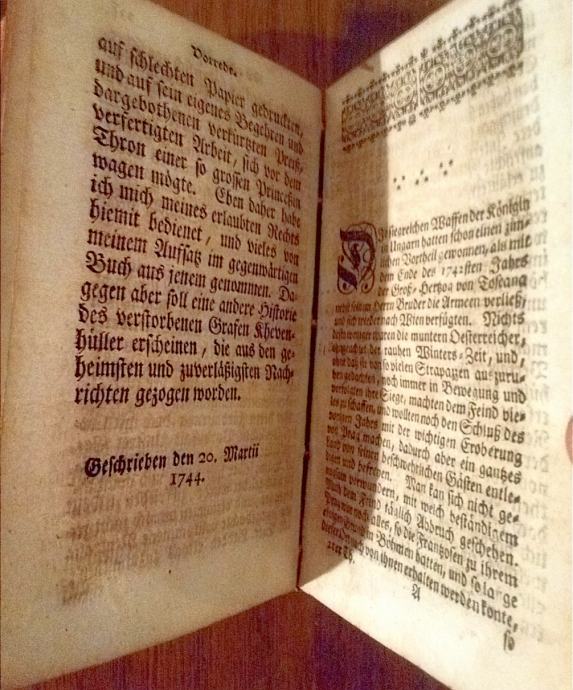 Vorrede.
auf schlechten Papier gedruckten,
und auf sein eigenes Begehren und
dargebothenen verkürtzten Preiß,
verfertigten Arbeit, sich vor dem
Thron einer so grossen Princeßin
wagen mögte. Eben daher habe
ich mich meines erlaubten Rechts
hiemit bedienet, und vieles von
meinem Aufsatz im gegenwärtigen
Buch aus jenem genommen. Da-
gegen aber soll eine andere Historie
des verstorbenen Grafen Kheven-
hüller erscheinen, die aus den ge-
heimsten und zuverläßigsten Nach-
richten gezogen worden.
Geschrieben den 20. Martii
1744.
Die siegreichen Waffen der Königin
in Ungarn hatten schon einen zim-
lichen Vortheil gewonnen, als mit
dem Ende des 1742sten Jahrs
der Groß-Hertzog von Toscana
nebst seinem Herrn Bruder die Armeen verließ,
und sich wieder nach Wien verfügten. Nichts
desto weniger waren die muntern Oesterreicher,
ohngeachtet der rauhen Winters-Zeit, und,
ohne daß sie von so vielen Strapazen auszuru-
hen gedachten, noch immer in Bewegung und
verfolgten ihre Siege, machten dem Feind vie-
les zu schaffen, und wollten noch den Schluß des
vorigen Jahrs mit der wichtigen Eroberung
von Prag machen, dadurch aber ein gantzes
Land von seinen beschwehrlichen Gästen entle-
digen und befreyen. Man kan sich nicht ge-
nugsam verwundern, mit welch beständigem
Muth dem Feind täglich Abbruch geschehen.
Prag war noch alles, so die Frantzosen zu ihrem
Böhmen hatten, und so lange
von ihnen erhalten werden konte,
A
so